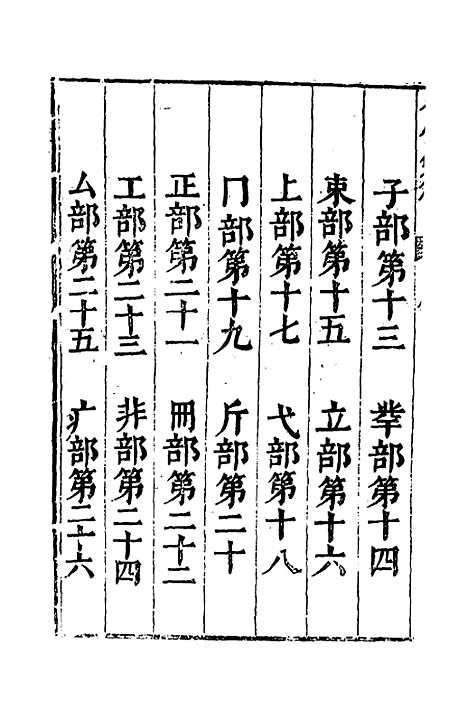 子部第十三　丵部第十四
東部第十五　立部第十六
上部第十七　弋部第十八
冂部第十九　斤部第二十
正部第二十一　冊部第二十二
工部第二十三　非部第二十四
厶部第二十五　疒部第二十六